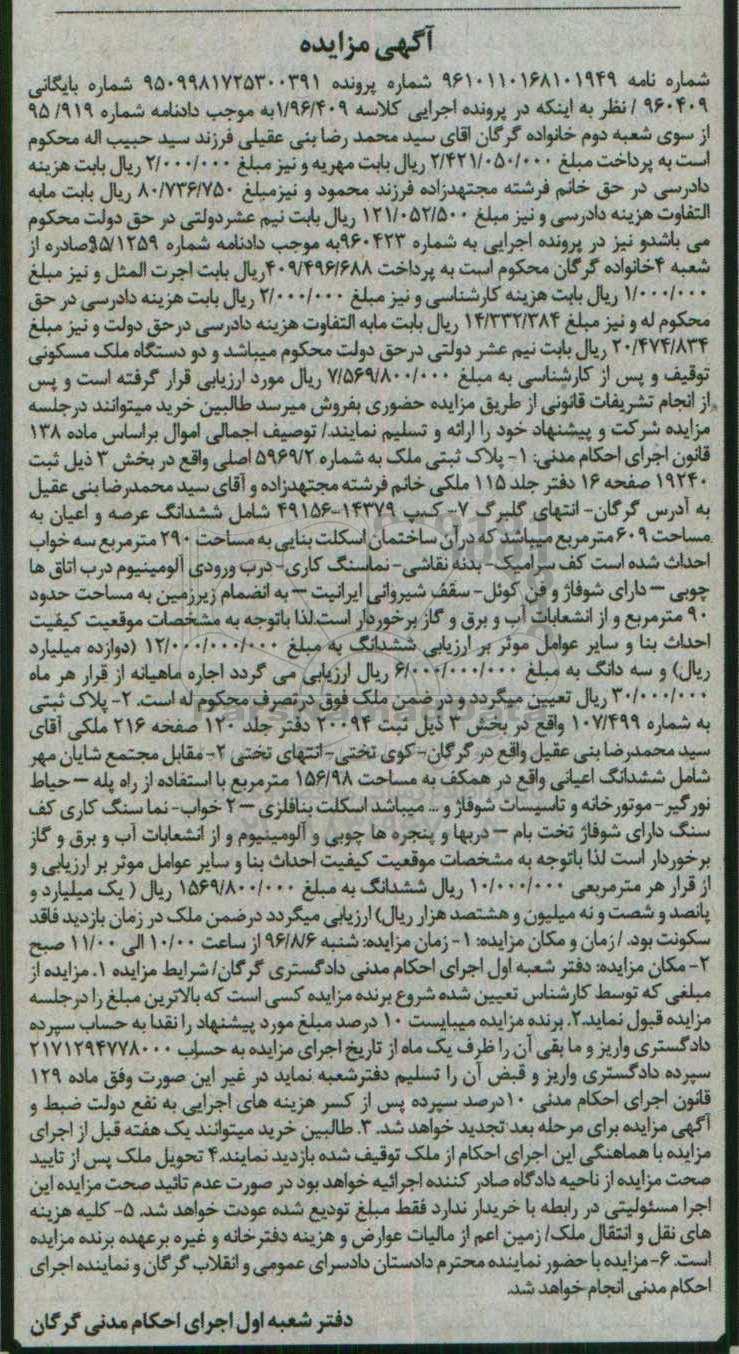 آگهی مزایده
شماره نامه ۹۶۱۰۱۱۰۱۶۸۱۰۱۹۴۹ شماره پرونده ۹۵۰۹۹۸۱۷۲۵۳۰۰۳۹۱ شماره بایگانی
۹۶۰۴۰۹ / نظر به اینکه در پرونده اجرایی کلاسه ۱/۹۶/۴۰۹به موجب دادنامه شماره ۹۱۹/ ۹۵
از سوی شعبه دوم خانواده گرگان اقای سید محمد رضا بنی عقیلی فرزند سید حبیب اله محکوم
است به پرداخت مبلغ ۲/۴۲۱/۰۵۰/۰۰۰ ریال بابت مهریه و نیز مبلغ ۲/۰۰۰/۰۰۰ ریال بابت هزینه
دادرسی در حق خانم فرشته مجتهدزاده فرزند محمود و نیزمبلغ ۸۰/۷۳۶/۷۵۰ ریال بابت مابه
التفاوت هزینه دادرسی و نیز مبلغ ۱۲۱/۰۵۲/۵۰۰ ریال بابت نیم عشردولتی در حق دولت محکوم
می باشدو نیز در پرونده اجرایی به شماره ۹۶۰۴۲۳به موجب دادنامه شماره ۹۵/۱۲۵۹صادره از
شعبه ۴خانواده گرگان محکوم است به پرداخت ۴۰۹/۴۹۶/۶۸۸ریال بابت اجرت المثل و نیز مبلغ
۱/۰۰۰/۰۰۰ ریال بابت هزینه کارشناسی و نیز مبلغ ۲/۰۰۰/۰۰۰ ریال بابت هزینه دادرسی در حق
محکوم له و نیز مبلغ ۱۴/۳۳۲/۳۸۴ ریال بابت مابه التفاوت هزینه دادرسی درحق دولت و نیز مبلغ
۲۰/۴۷۴/۸۳۴ ریال بابت نیم عشر دولتی درحق دولت محکوم میباشد و دو دستگاه ملک مسکونی
توقیف و پس از کارشناسی به مبلغ ۷/۵۶۹/۸۰۰/۰۰۰ ریال مورد ارزیابی قرار گرفته است و پس
از انجام تشریفات قانونی از طریق مزایده حضوری بفروش میرسد طالبین خرید میتوانند درجلسه
مزایده شرکت و پیشنهاد خود را ارائه و تسلیم نمایند./ توصیف اجمالی اموال براساس ماده ۱۳۸
قانون اجرای احکام مدنی: ۱- پلاک ثبتی ملک به شماره ۵۹۶۹/۲ اصلی واقع در بخش ۳ ذیل ثبت
۱۹۲۴۰ صفحه ۱۶ دفتر جلد ۱۱۵ ملکی خانم فرشته مجتهدزاده و آقای سید محمدرضا بنی عقیل
به آدرس گرگان- انتهای گلبرگ ۷- ک‌پ ۱۴۳۷۹-۴۹۱۵۶ شامل ششدانگ عرصه و اعیان به
مساحت ۶۰۹ مترمربع میباشد که درآن ساختمان اسکلت بنایی به مساحت ۲۹۰ مترمربع سه خواب
احداث شده است کف سرامیک- بدنه نقاشی- نماسنگ کاری- درب ورودی آلومینیوم درب اتاق ها
چوبی – دارای شوفاژ و فن کوئل- سقف شیروانی ایرانیت – به انضمام زیرزمین به مساحت حدود
۹۰ مترمربع و از انشعابات آب و برق و گاز برخوردار است.لذا باتوجه به مشخصات موقعیت کیفیت
احداث بنا و سایر عوامل موثر بر ارزیابی ششدانگ به مبلغ ۱۲/۰۰۰/۰۰۰/۰۰۰ (دوازده میلیارد
ریال) و سه دانگ به مبلغ ۶/۰۰۰/۰۰۰/۰۰۰ ریال ارزیابی می گردد اجاره ماهیانه از قرار هر ماه
۳۰/۰۰۰/۰۰۰ ریال تعیین میگردد و در ضمن ملک فوق درتصرف محکوم له است. ۲- پلاک ثبتی
به شماره ۱۰۷/۴۹۹ واقع در بخش ۳ ذیل ثبت ۲۰۰۹۴ دفتر جلد ۱۲۰ صفحه ۲۱۶ ملکی آقای
سید محمدرضا بنی عقیل واقع در گرگان- کوی تختی- انتهای تختی ۲- مقابل مجتمع شایان مهر
شامل ششدانگ اعیانی واقع در همکف به مساحت ۱۵۶/۹۸ مترمربع با استفاده از راه پله – حیاط
نورگیر- موتورخانه و تاسیسات شوفاژ و ... میباشد اسکلت بنافلزی – ۲ خواب- نما سنگ کاری کف
سنگ دارای شوفاژ تخت بام – دربها و پنجره ها چوبی و آلومینیوم و از انشعابات آب و برق و گاز
برخوردار است لذا باتوجه به مشخصات موقعیت کیفیت احداث بنا و سایر عوامل موثر بر ارزیابی و
از قرار هر مترمربعی ۱۰/۰۰۰/۰۰۰ ریال ششدانگ به مبلغ ۱۵۶۹/۸۰۰/۰۰۰ ریال ( یک میلیارد و
پانصد و شصت و نه میلیون و هشتصد هزار ریال) ارزیابی میگردد درضمن ملک در زمان بازدید فاقد
سکونت بود. / زمان و مکان مزایده: ۱- زمان مزایده: شنبه ۹۶/۸/۶ از ساعت ۱۰/۰۰ الی ۱۱/۰۰ صبح
۲- مکان مزایده: دفتر شعبه اول اجرای احکام مدنی دادگستری گرگان/ شرایط مزایده ۱. مزایده از
مبلغی که توسط کارشناس تعیین شده شروع برنده مزایده کسی است که بالاترین مبلغ را درجلسه
مزایده قبول نماید.۲. برنده مزایده میبایست ۱۰ درصد مبلغ مورد پیشنهاد را نقدا به حساب سپرده
دادگستری واریز و ما بقی آن را ظرف یک ماه از تاریخ اجرای مزایده به حساب ۲۱۷۱۲۹۴۷۷۸۰۰۰
سپرده دادگستری واریز و قبض آن را تسلیم دفترشعبه نماید در غیر این صورت وفق ماده ۱۲۹
قانون اجرای احکام مدنی ۱۰درصد سپرده پس از کسر هزینه های اجرایی به نفع دولت ضبط و
آگهی مزایده برای مرحله بعد تجدید خواهد شد. ۳. طالبین خرید میتوانند یک هفته قبل از اجرای
مزایده با هماهنگی این اجرای احکام از ملک توقیف شده بازدید نمایند.۴ تحویل ملک پس از تایید
صحت مزایده از ناحیه دادگاه صادر کننده اجرائیه خواهد بود در صورت عدم تائید صحت مزایده این
اجرا مسئولیتی در رابطه با خریدار ندارد فقط مبلغ تودیع شده عودت خواهد شد. ۵- کلیه هزینه
های نقل و انتقال ملک/ زمین اعم از مالیات عوارض و هزینه دفترخانه و غیره برعهده برنده مزایده
است. ۶- مزایده با حضور نماینده محترم دادستان دادسرای عمومی و انقلاب گرگان و نماینده اجرای
احکام مدنی انجام خواهد شد.
دفتر شعبه اول اجرای احکام مدنی گرگان